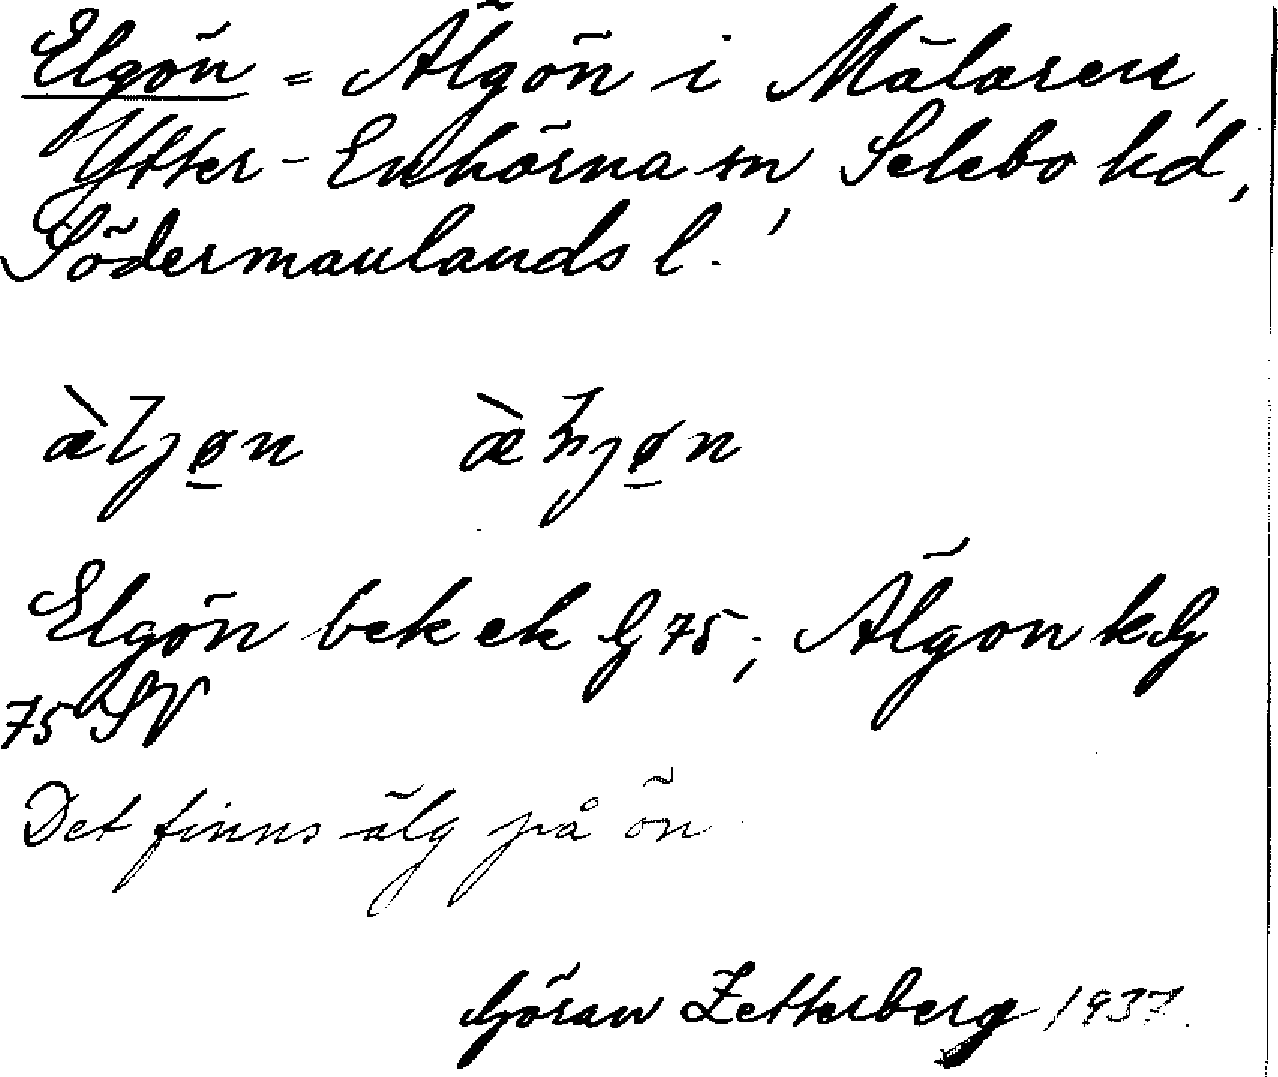 Elgön = Älgön i Mälaren,
Ytter-Enhörna sn, Selebo hd,
Södermanlands l.
Elgön bek ek G 75; Älgon k G
75 SV
Det finns älg på ön
Göran Zetterberg 1937.